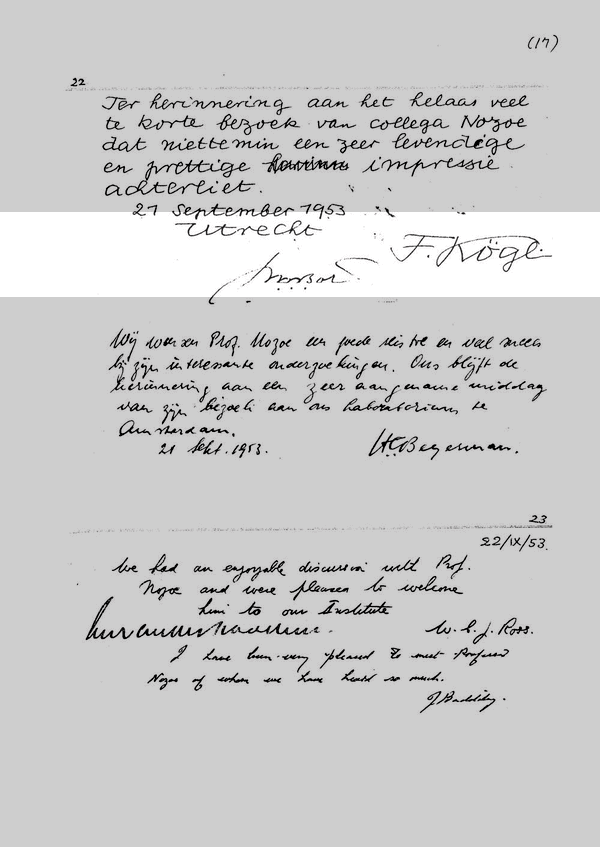 (17)
22
Ter herinnering aan het helaas veel
te korte bezoek van collega Nozoe
dat niettemin een zeer levendige
en prettige impressie
achterliet.
21 September 1953
Utrecht
F. Kögl
Wij wensen Prof. Nozoe een goede reis toe en veel succes
bij zijn interessante onderzoekingen. Ons blijft de
herinnering aan een zeer aangename middag
van zijn bezoek aan ons laboratorium te
Amsterdam.
21 Sept. 1953.
HC Beyerman.
23
22/IX/53.
We had an enjoyable discussion with Prof.
Nozoe and were pleased to welcome
him to our Institute
W. C. J. Ross.
I have been very pleased to meet Professor
Nozoe of whom we have heard so much.
J Baddiley.